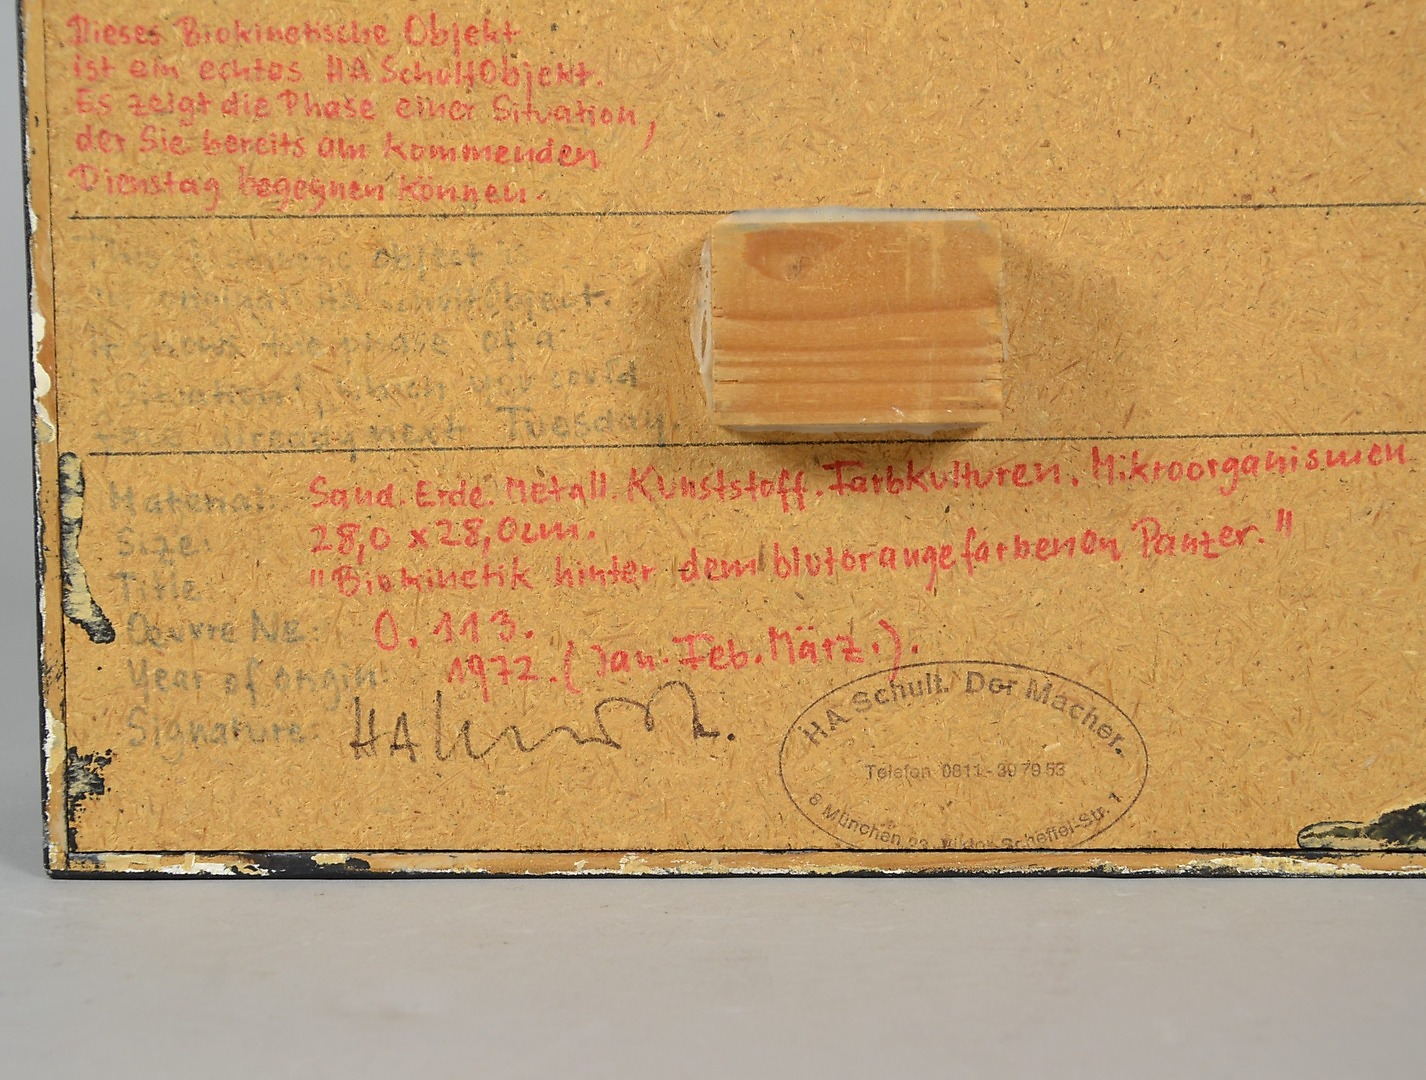 Dieses Biokinetische Objekt
ist ein echtes HA Schult Objekt.
Es zeigt die Phase einer Situation,
der Sie bereits am kommenden
Dienstag begegnen können.
This object
original HA Schult object.
It shows the phase of a
"Situation", which you could
face already next Tuesday.
Material: Sand. Erde. Metall. Kunststoff. Farbkulturen. Mikroorganismen
Size: 28,0 x 28,0cm.
Title: "Biokinetik hinter dem blutorangefarbenen Panzer."
Oeuvre NR: 0.113.
Year of origin: 1972. (Jan. Feb. März.).
Signature: HA Schult.
HA Schult. Der Macher.
Telefon 0811-39 79 53
8 München 23, Viktor-Scheffel-Str. 1